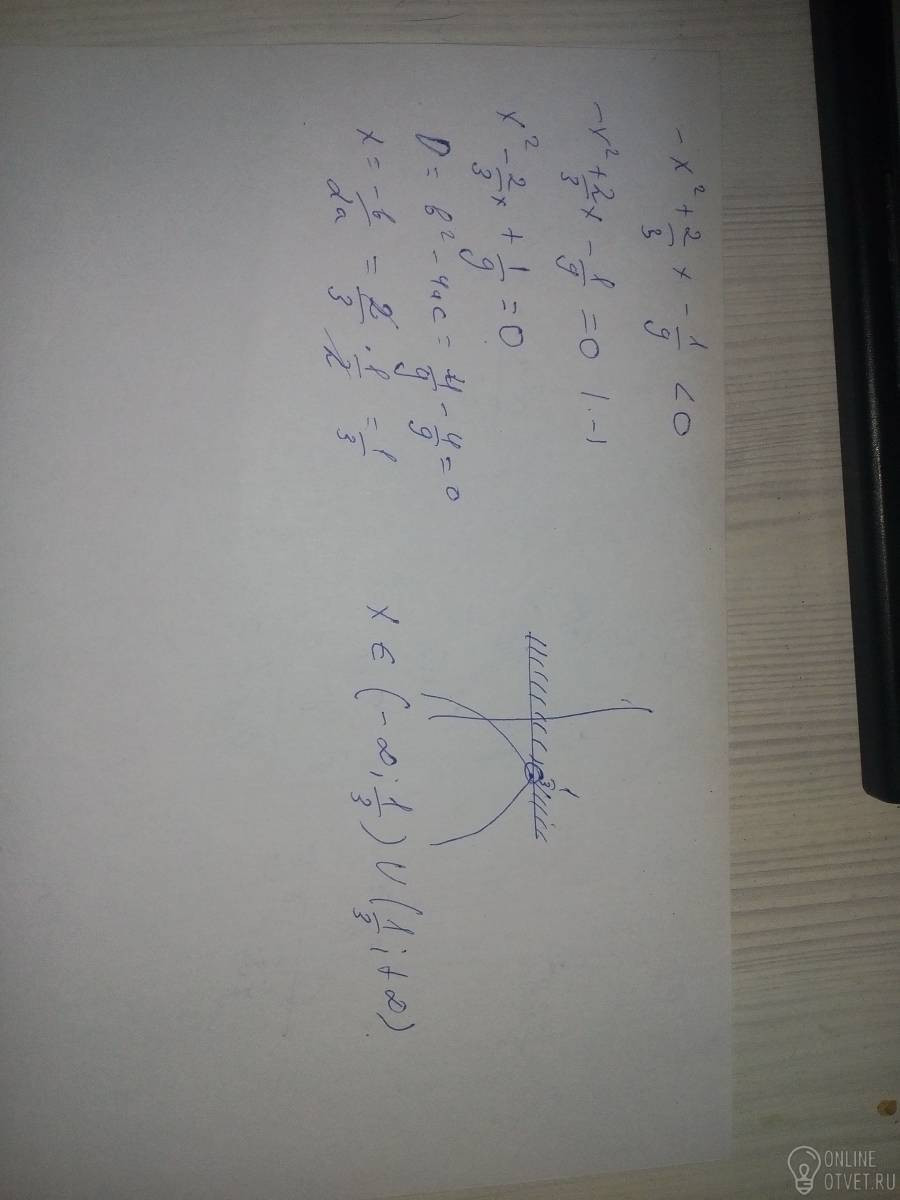 - x² + 2/3 x - 1/9 < 0
- x² + 2/3 x - 1/9 = 0 | · -1
x² - 2/3 x + 1/9 = 0
D = b² - 4ac = 4/9 - 4/9 = 0
x = -b/2a = 2/3 · 1/2 = 1/3
1/3
x ∈ (-∞; 1/3) ∪ (1/3; +∞)
ONLINE
OTVET.RU